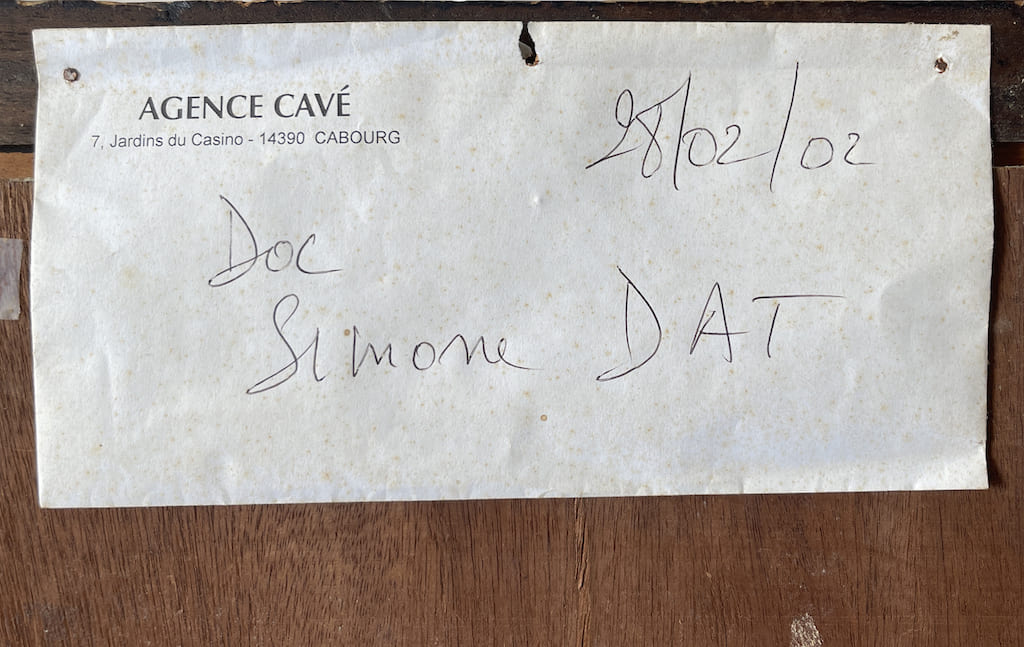 AGENCE CAVÉ
7, Jardins du Casino - 14390 CABOURG
28/02/02
Doc
Simone DAT